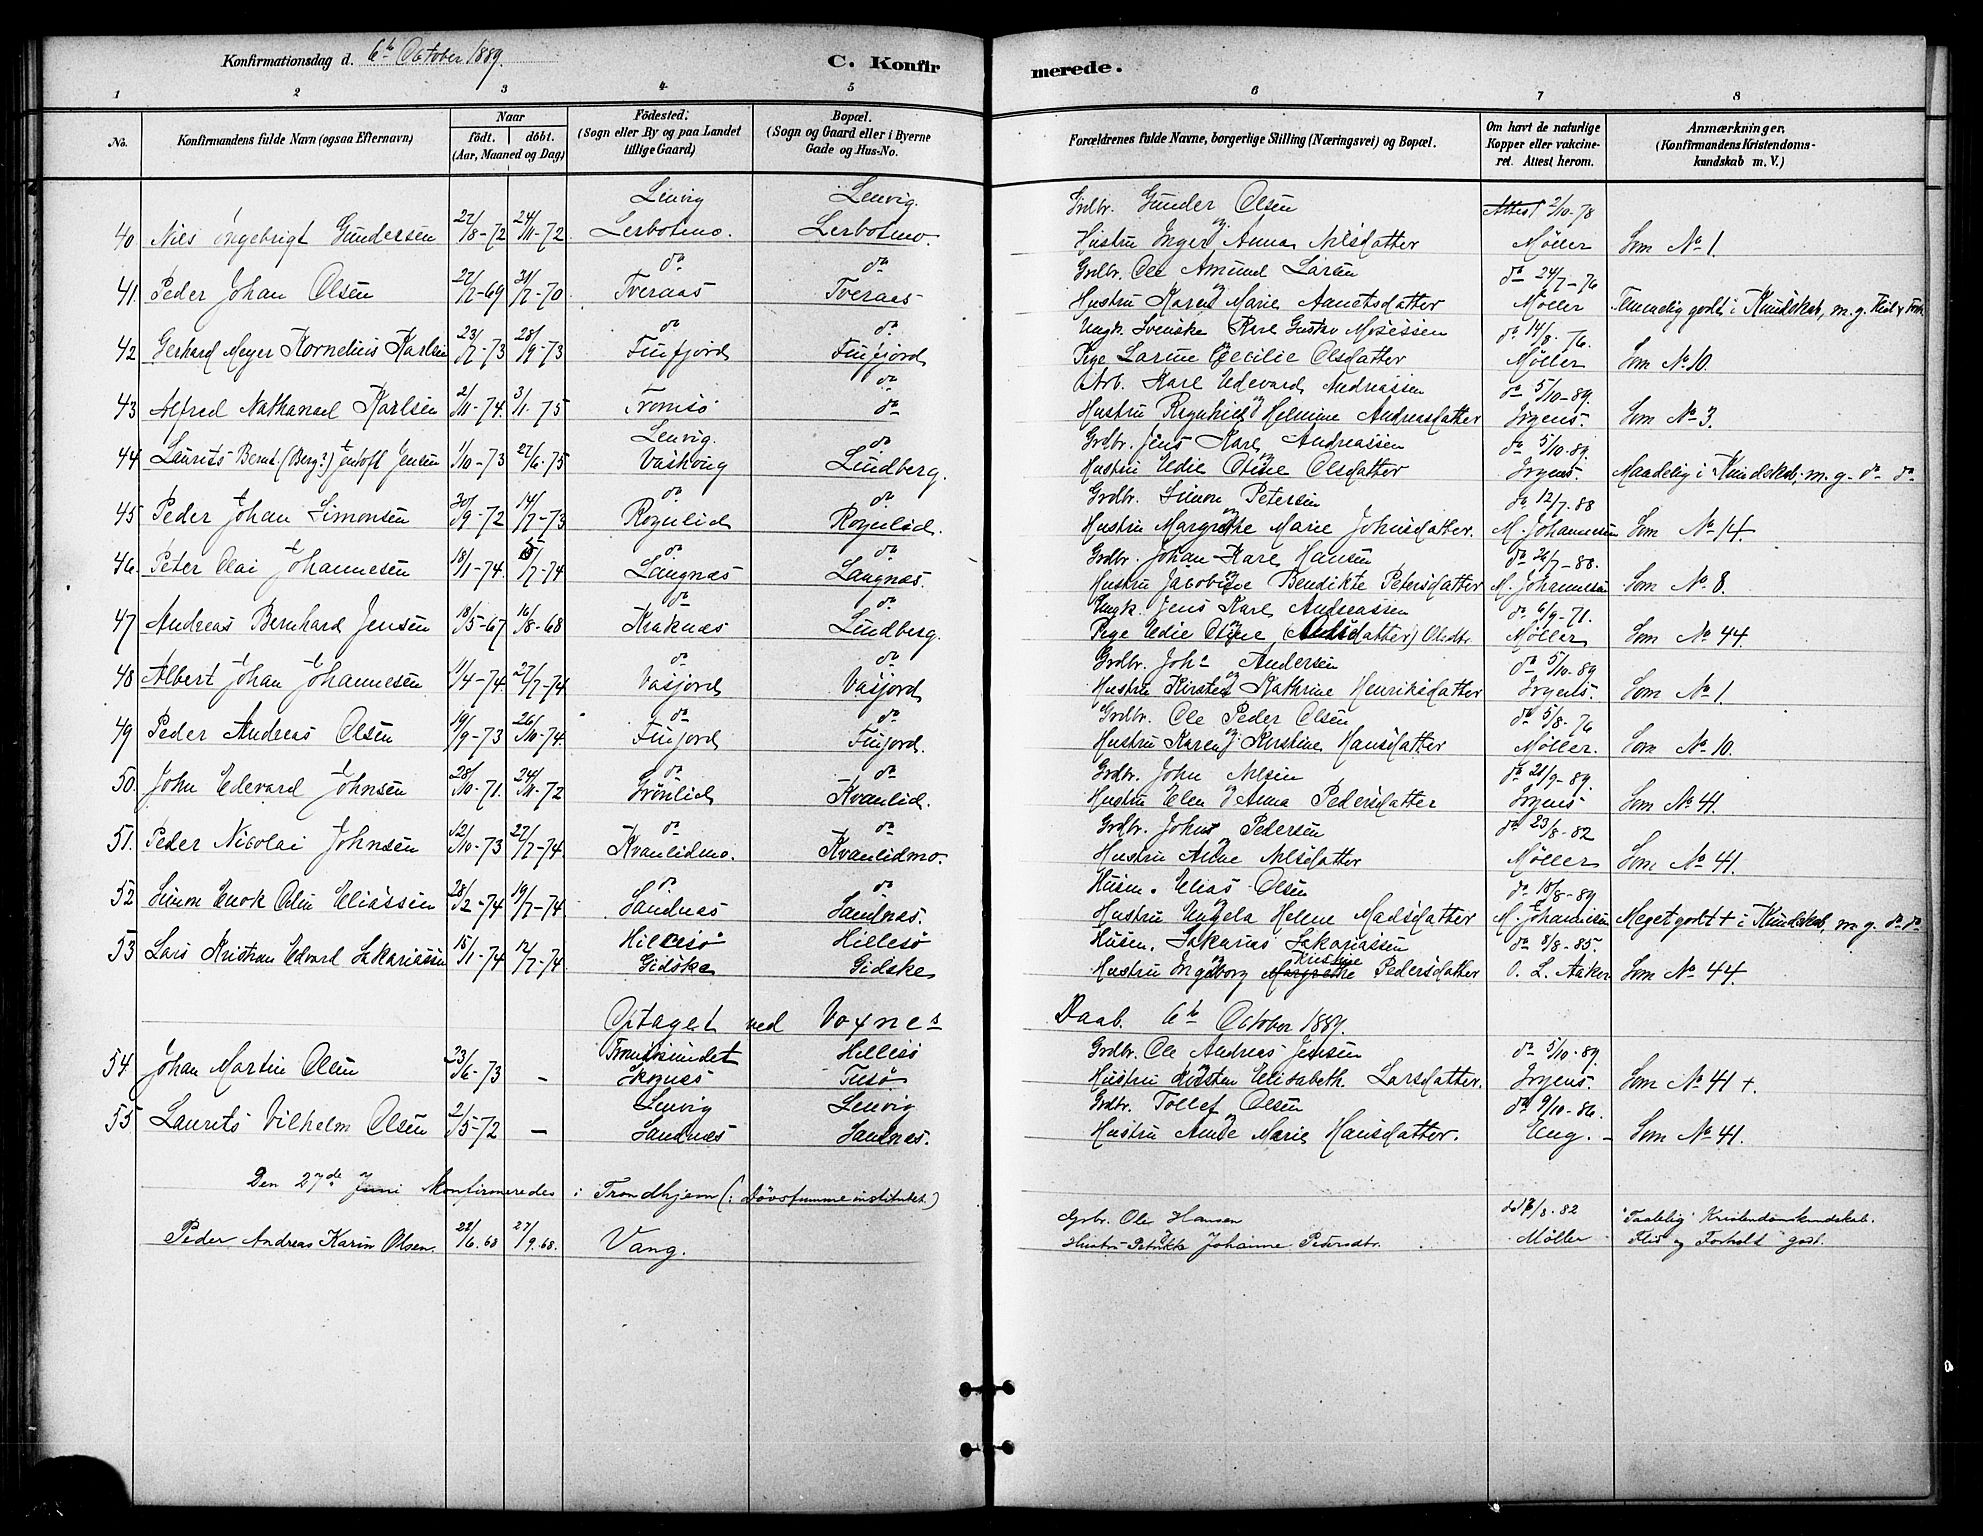 Konfirmationsdag d. 6te October 1889.
C. Konfirmerede.
1 2 3 4 5 6 7 8
No. Konfirmandens fulde Navn (ogsaa Efternavn) Naar født. døbt. (Aar, Maaned og Dag) Fødested: (Sogn eller By og paa Landet tillige Gaard) Bopæl. (Sogn og Gaard eller i Byerne Gade og Hus-No. Forældrenes fulde Navne, borgerlige Stilling (Næringsvei) og Bopæl. Om havt de naturlige Kopper eller vakcineret. Attest herom. Anmærkninger. (Konfirmandens Kristendomskundskab m. V.)
Lenvig Lenvig. Grdbr. Gunder Olsen Attest 2/10-78
40 Nils Ingebrigt Gundersen 27/8-72 24/11-72 Lerbotmo. Lerbotmo. Hustru Inger Anna Nilsdatter Møller Som No 1.
do do Grdbr. Ole Amund Larsen do 24/7-76
41. Peder Johan Olsen 31/7-70 Tveraas Tveraas Hustru Karen Marie Møller Temmelig godt i Kundskab, m. g. Flid
do do Ungk. Svenske Karl Gustav Mosessen do 14/8-76.
42 Gerhard Meyer Kornelius Karlsen 23/7-73 28/9-73 Finfjord Finfjord Pige Larine Cecilie Olsdatter Møller Som No 10.
do Arb. Karl Edevard Andreassen do 5/10-89.
43 Alfred Nathanael Karlsen 2/11-74. 3/1-75 Tromsö do Hustru Helmine Andreasdatter Irgens. Som No 3.
Lenvig. do Grdbr. Jens Karl Andreassen do 5/10-89.
44 Laurits Bernt (Berg?) Jentoft Jensen 1/10-73 27/6-75 Lundberg. Hustru Edie Otine Olsdatter Irgens. Maadelig i Kundskab, m. g. do do
do do Grdbr. Simon Petersen do 12/7-88
45 Peder Johan Simonsen 30/9-72 14/7-73 Rognlid Rognlid. Hustru Margrethe Marie Johnsdatter. M. Johannesen Som No 14.
do do Grdbr. Johan Karl Hansen do 26/7-88.
46. Peter Olai Johannesen 18/1-74. Langnæs Langnæs. Hustru Jacobine Bendikte Petersdatter M. Johannesen Som No 8.
do do Ungk. Jens Karl Andreassen do 6/9-71.
47 Andreas Bernhard Jensen 18/5-67 16/8-68 Kraknæs Lundberg. Pige Edie Otine Olsdtr. Møller Som No 44.
do do Grdbr. Johs Andersen do 5/10-89
48 Albert Johan Johannesen 11/4-74 27/7-74 Vasjord Vasjord Hustru Kirsten Kathrine Henriksdatter Irgens. Som No 1.
do do Grdbr. Ole Peder Olsen do 5/8-76
49 Peder Andreas Olsen 19/9-73 26/10-74. Finjord Finjord. Hustru Karen Kirstine Hansdatter Møller. Som No 10.
do do Grdbr. John Nilsen do 28/9-89.
50. John Edevard Johnsen 28/10-71. 24/11-72 Grönlid Kvanlid. Hustru Elen Anna Pedersdatter Irgens Som No 41.
do do Grdbr. John Pedersen do 23/8-82
51. Peder Nicolai Johnsen 12/10-73 27/7-74. Kvanlidmo. Kvanlidmo. Hustru Anne Nilsdatter Møller Som No 41.
do do Husm. Elias Olsen do 18/8-89
52 Simon Enok Eliassen 28/2-74 19/7-74 Sandnæs Sandnæs. Hustru Engela Helene Madsdatter M. Johannesen Meget godt + i Kundskab, m. g. do do
Hillesö Hillesö Husm. Sakarias Sakariassen do 8/8-85.
53 Lars Kristian Edvard Sakariassen 15/1-74 12/7-74. Gidske Gidske Hustru Ingeborg Margrethe Kristine Pedersdatter O. L. Aaker Som No 44.
Optaget ved Voxnes Daab. 6te October 1889.
Tromsösundet Hillesö Grdbr. Ole Andreas Jensen do 5/10-89.
54 Johan Martin Olsen 23/6-73 - Skognæs Tusö Hustru Kirsten Elisabeth Larsdatter. Irgens. Som No 41 +.
Lenvig Lenvig Grdbr. Tollef Olsen do 9/10-86.
55 Laurits Vilhelm Olsen 2/5-72 - Sandnæs Sandnæs. Hustru Anne Marie Hansdatter. Eng. - Som No 41.
Den 27de Juni Konfirmeredes i Trondhjem (: Døvstummeinstitutet)
Gbr. Ole Hansen 8-82 "Taalelig" Kristendomskundskab.
Peder Andreas Karin Olsen. 28/6.68 27/9.68. Vang. Hustru Petrikke Johanne Pedersdtr. Møller Flid og Forhold "godt".